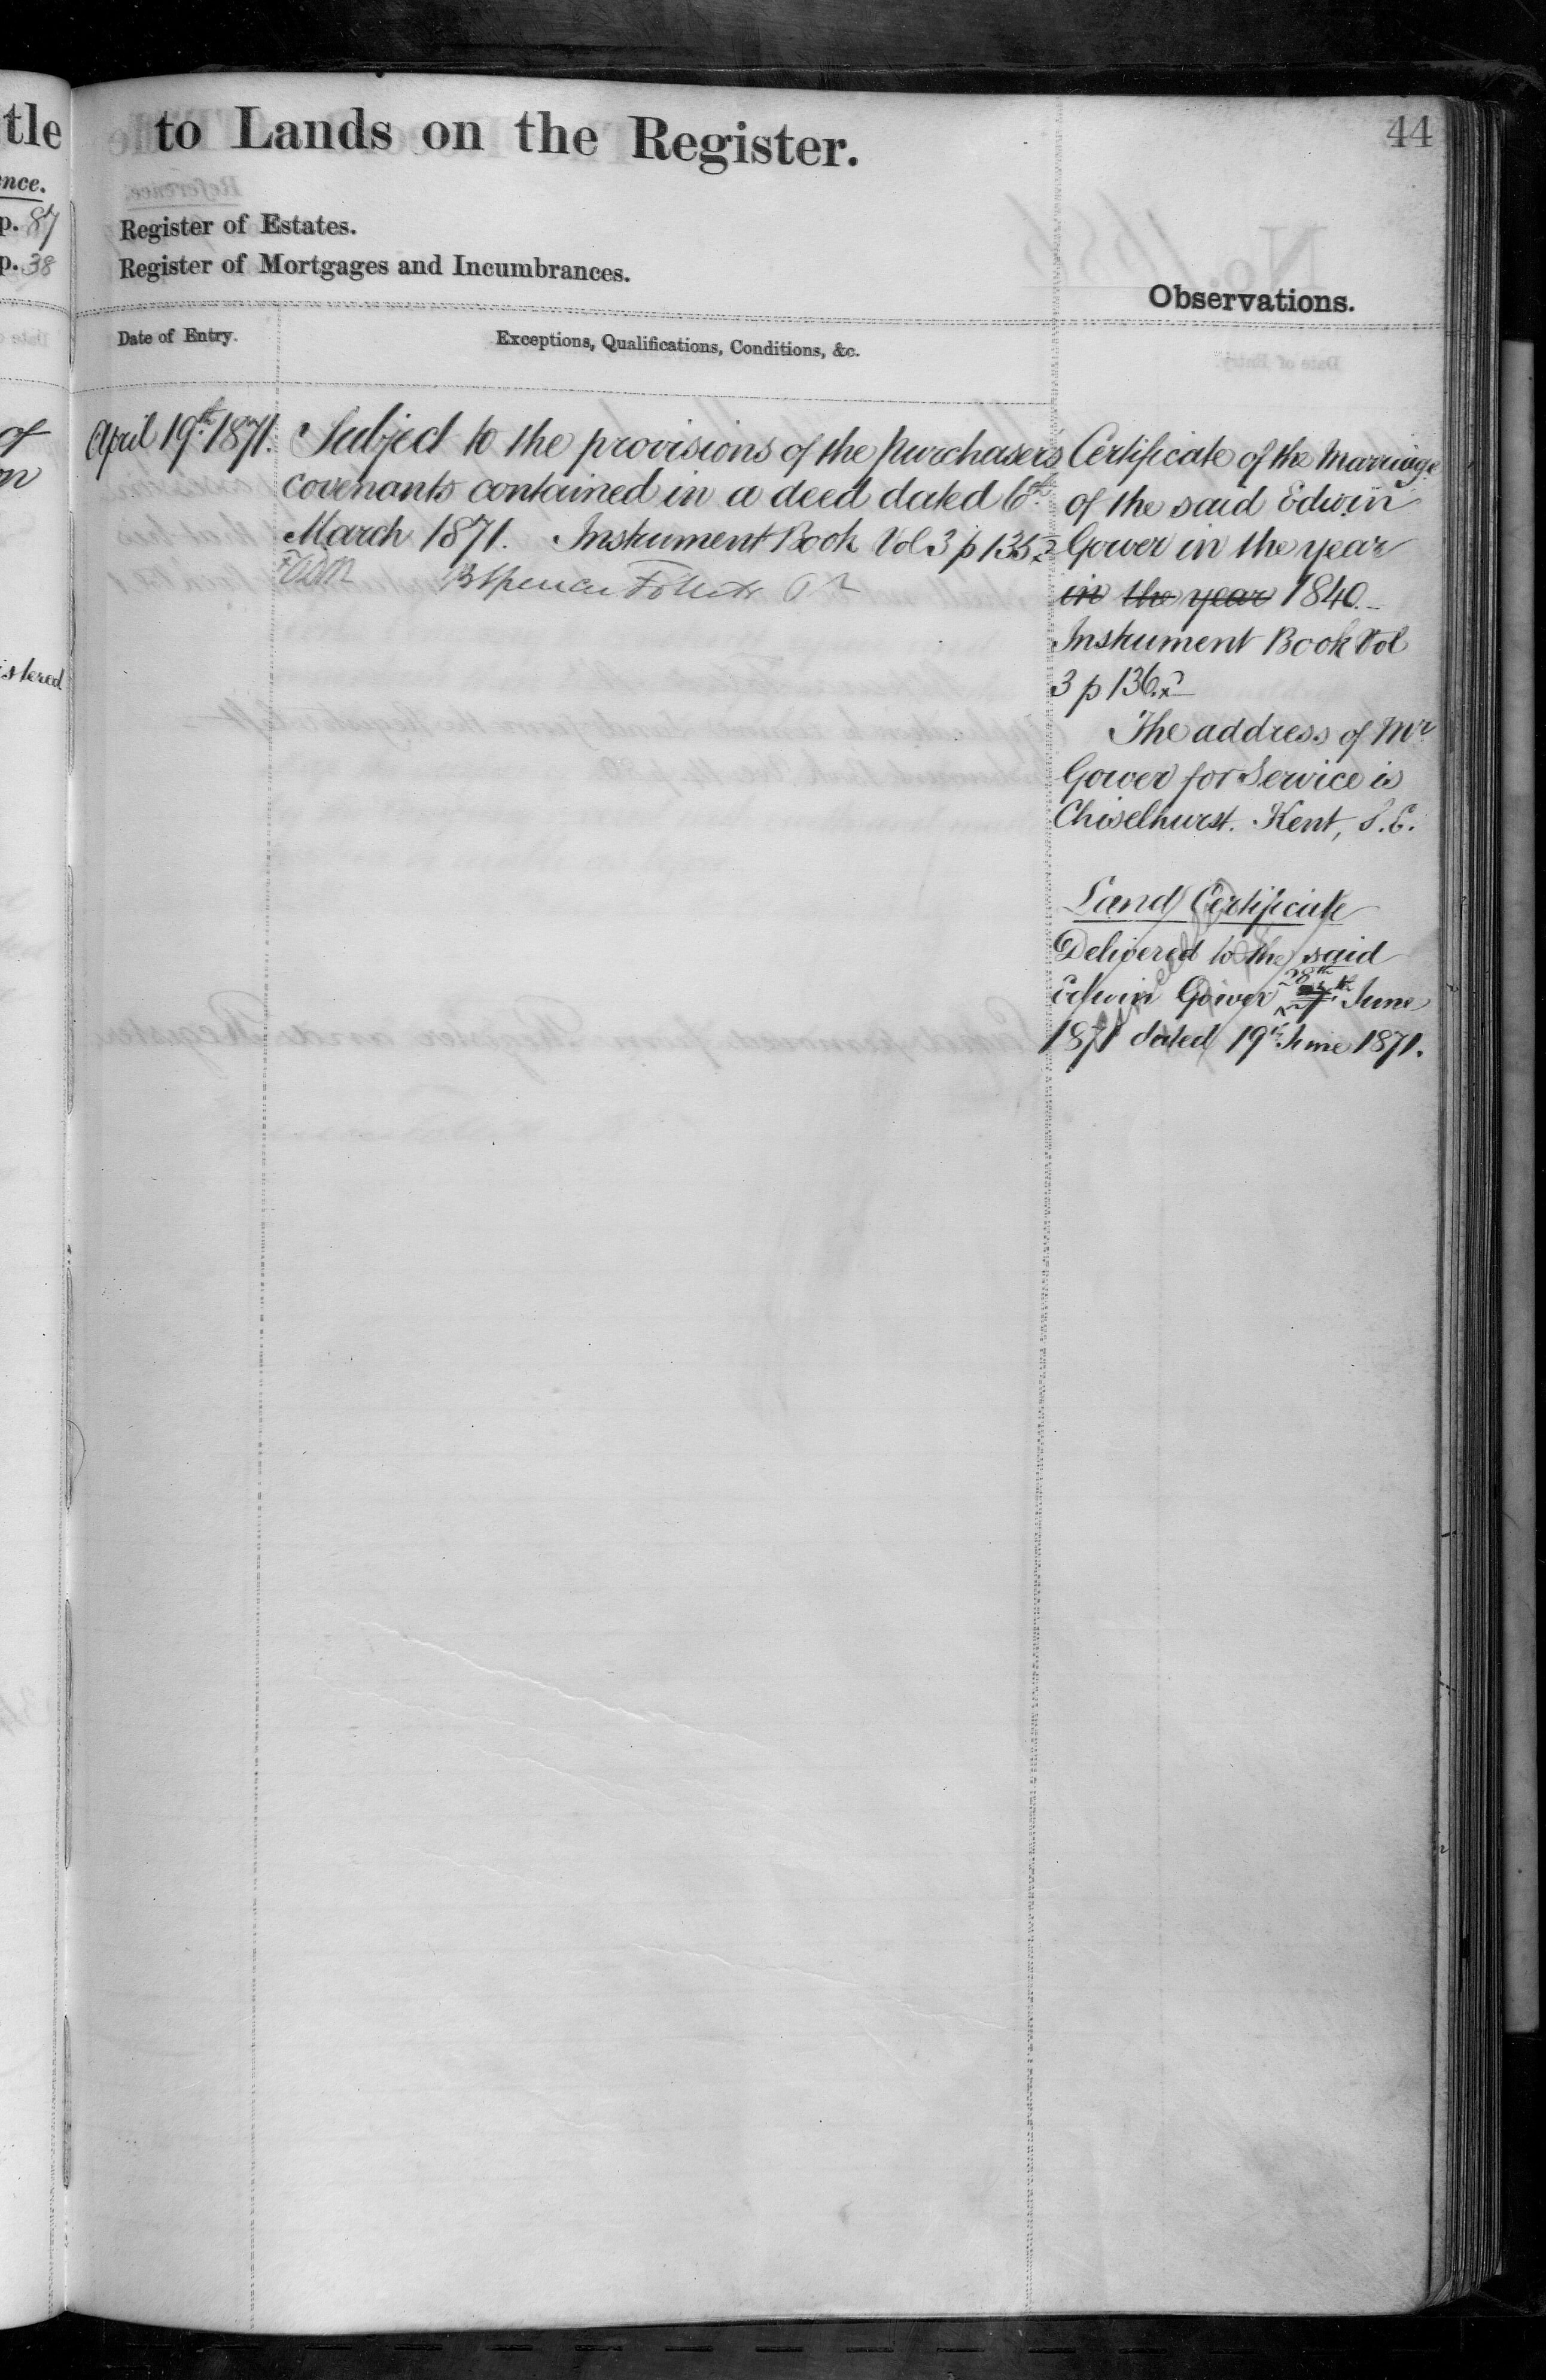 tle
nce.
p. 87
p. 38
of
on
istered
to Lands on the Register.
44
Register of Estates.
Register of Mortgages and Incumbrances.
Observations.
Date of Entry.
Exceptions, Qualifications, Conditions, &c.
April 19th 1871.
Subject to the provisions of the purchasers
covenants contained in a deed dated 6th
March 1871. Instrument Book Vol 3 p 135
Spencer Follett
Certificate of the Marriage
of the said Edwin
Gower in the year
in the year 1840.
Instrument Book Vol
3 p 136.
The address of Mr
Gower for Service is
Chiselhurst. Kent, S.E.
Land Certificate
Delivered to the said
Edwin Gower 28th June
1871 dated 19th June 1871.
Cancelled